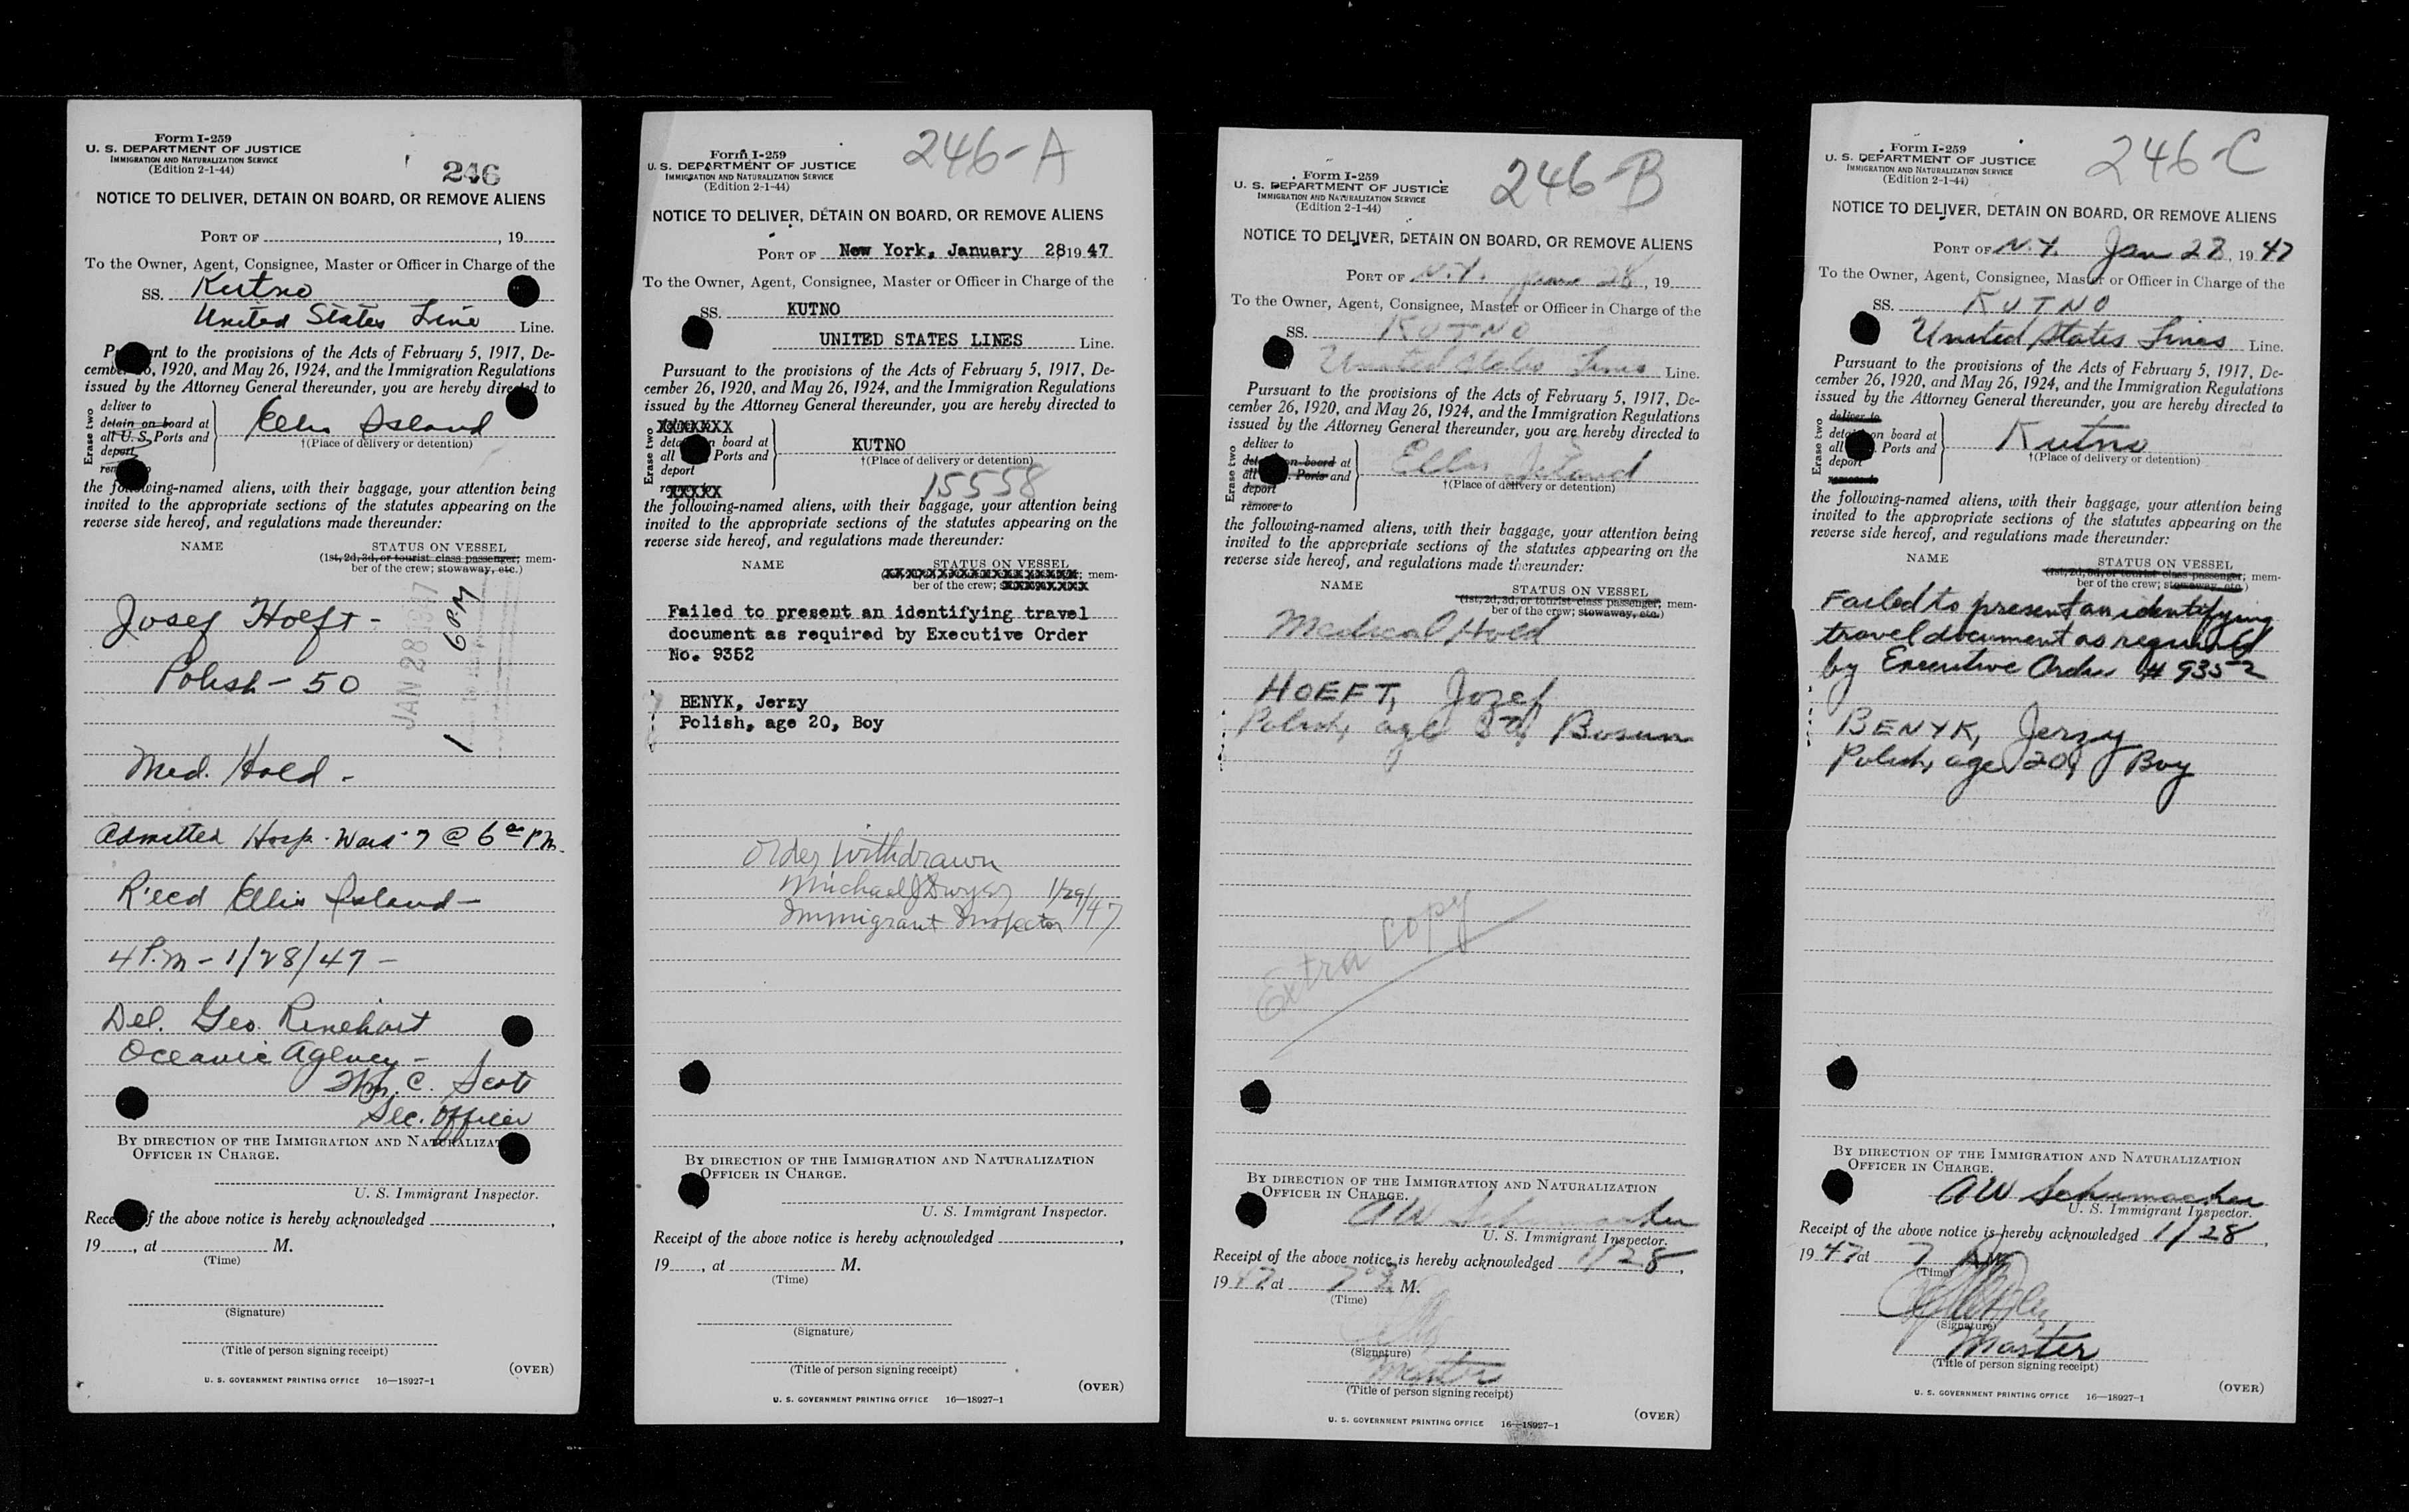 Form I-259
U. S. DEPARTMENT OF JUSTICE
IMMIGRATION AND NATURALIZATION SERVICE
(Edition 2-1-44)
246
NOTICE TO DELIVER, DETAIN ON BOARD, OR REMOVE ALIENS
PORT OF , 19
To the Owner, Agent, Consignee, Master or Officer in Charge of the
SS. Kutno
United States Line Line.
Pursuant to the provisions of the Acts of February 5, 1917, De-
cember 26, 1920, and May 26, 1924, and the Immigration Regulations
issued by the Attorney General thereunder, you are hereby directed to
Erase two
deliver to
detain on board at
all U. S. Ports and
deport
Ellis Island
†(Place of delivery or detention)
the following-named aliens, with their baggage, your attention being
invited to the appropriate sections of the statutes appearing on the
reverse side hereof, and regulations made thereunder:
NAME STATUS ON VESSEL
(1st, 2d, 3d, or tourist class passenger; mem-
ber of the crew; stowaway, etc.)
Josef Hoeft -
Polish - 50
JAN 28 1947
6 PM
Med. Hold -
Admitted Hosp. Ward 7 @ 6 00 P.M.
R'ecd Ellis Island -
4 P.M - 1/28/47 -
Del. Geo. Rinehart
Oceanic Agency -
Wm. C. Scott
Sec. Officer
BY DIRECTION OF THE IMMIGRATION AND NATURALIZAT
OFFICER IN CHARGE.
U. S. Immigrant Inspector.
Receipt of the above notice is hereby acknowledged ,
19 , at M.
(Time)
(Signature)
(Title of person signing receipt)
(OVER)
U. S. GOVERNMENT PRINTING OFFICE 16—18927-1
Form I-259
U. S. DEPARTMENT OF JUSTICE
IMMIGRATION AND NATURALIZATION SERVICE
(Edition 2-1-44)
246-A
NOTICE TO DELIVER, DETAIN ON BOARD, OR REMOVE ALIENS
PORT OF New York, January 28 19 47
To the Owner, Agent, Consignee, Master or Officer in Charge of the
SS. KUTNO
UNITED STATES LINES Line.
Pursuant to the provisions of the Acts of February 5, 1917, De-
cember 26, 1920, and May 26, 1924, and the Immigration Regulations
issued by the Attorney General thereunder, you are hereby directed to
Erase two
XXXXXXX
detain on board at
all Ports and
deport
XXXXX
KUTNO
†(Place of delivery or detention)
15558
the following-named aliens, with their baggage, your attention being
invited to the appropriate sections of the statutes appearing on the
reverse side hereof, and regulations made thereunder:
NAME STATUS ON VESSEL
mem-
ber of the crew;
Failed to present an identifying travel
document as required by Executive Order
No. 9352
BENYK, Jerzy
Polish, age 20, Boy
Order Withdrawn
Michael J Dwyer 1/29/47
Immigrant Inspector
BY DIRECTION OF THE IMMIGRATION AND NATURALIZATION
OFFICER IN CHARGE.
U. S. Immigrant Inspector.
Receipt of the above notice is hereby acknowledged ,
19 , at M.
(Time)
(Signature)
(Title of person signing receipt)
(OVER)
U. S. GOVERNMENT PRINTING OFFICE 16—18927-1
Form I-259
U. S. DEPARTMENT OF JUSTICE
IMMIGRATION AND NATURALIZATION SERVICE
(Edition 2-1-44)
246-B
NOTICE TO DELIVER, DETAIN ON BOARD, OR REMOVE ALIENS
PORT OF N.Y. Jan 28, 19
To the Owner, Agent, Consignee, Master or Officer in Charge of the
SS. KUTNO
United States Lines Line.
Pursuant to the provisions of the Acts of February 5, 1917, De-
cember 26, 1920, and May 26, 1924, and the Immigration Regulations
issued by the Attorney General thereunder, you are hereby directed to
Erase two
deliver to
on board at
all Ports and
deport
remove to
Ellis Island
†(Place of delivery or detention)
the following-named aliens, with their baggage, your attention being
invited to the appropriate sections of the statutes appearing on the
reverse side hereof, and regulations made thereunder:
NAME STATUS ON VESSEL
(1st, 2d, 3d, or tourist class passenger; mem-
ber of the crew; stowaway, etc.)
Medical Hold
HOEFT, Jozef
Polish, age 50, Bosun
Extra copy
BY DIRECTION OF THE IMMIGRATION AND NATURALIZATION
OFFICER IN CHARGE.
AW Schumacher
U. S. Immigrant Inspector.
Receipt of the above notice is hereby acknowledged 1/28,
19 47, at 7 M.
(Time)
(Signature)
Master
(Title of person signing receipt)
(OVER)
U. S. GOVERNMENT PRINTING OFFICE 16—18927-1
Form I-259
U. S. DEPARTMENT OF JUSTICE
IMMIGRATION AND NATURALIZATION SERVICE
(Edition 2-1-44)
246-C
NOTICE TO DELIVER, DETAIN ON BOARD, OR REMOVE ALIENS
PORT OF N.Y. Jan 28, 19 47
To the Owner, Agent, Consignee, Master or Officer in Charge of the
SS. KUTNO
United States Lines Line.
Pursuant to the provisions of the Acts of February 5, 1917, De-
cember 26, 1920, and May 26, 1924, and the Immigration Regulations
issued by the Attorney General thereunder, you are hereby directed to
Erase two
deliver to
detain on board at
all Ports and
deport
remove to
Kutno
†(Place of delivery or detention)
the following-named aliens, with their baggage, your attention being
invited to the appropriate sections of the statutes appearing on the
reverse side hereof, and regulations made thereunder:
NAME STATUS ON VESSEL
(1st, 2d, 3d, or tourist class passenger; mem-
ber of the crew; stowaway, etc.)
Failed to present an identifying
travel document as required
by Executive Order # 9352
BENYK, Jerzy
Polish, age 20, Boy
BY DIRECTION OF THE IMMIGRATION AND NATURALIZATION
OFFICER IN CHARGE.
AW Schumacher
U. S. Immigrant Inspector.
Receipt of the above notice is hereby acknowledged 1/28,
19 47 at 7 M.
(Time)
(Signature)
Master
(Title of person signing receipt)
(OVER)
U. S. GOVERNMENT PRINTING OFFICE 16—18927-1